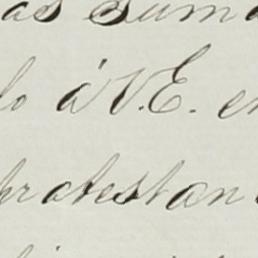 as suma
lo á V.E. en
protestan